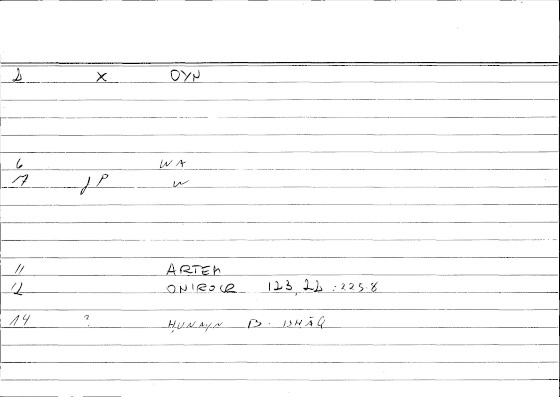 2 x ΟΥΝ
6 WA
7 JP W
11 ARTEM
12 ONIROCR 123, 22 : 225.8
14 ? ḤUNAYN B. ISḤĀQ